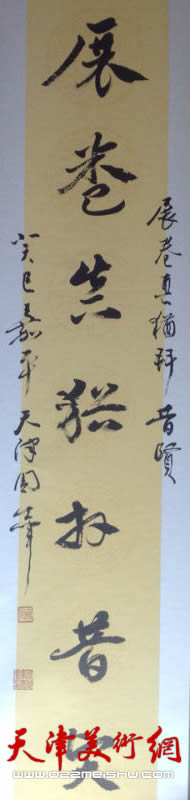 展卷真猶拜昔賢
展卷真猶拜 昔賢
癸巳嘉平 天津國華
天津美術網
www.022meishu.com